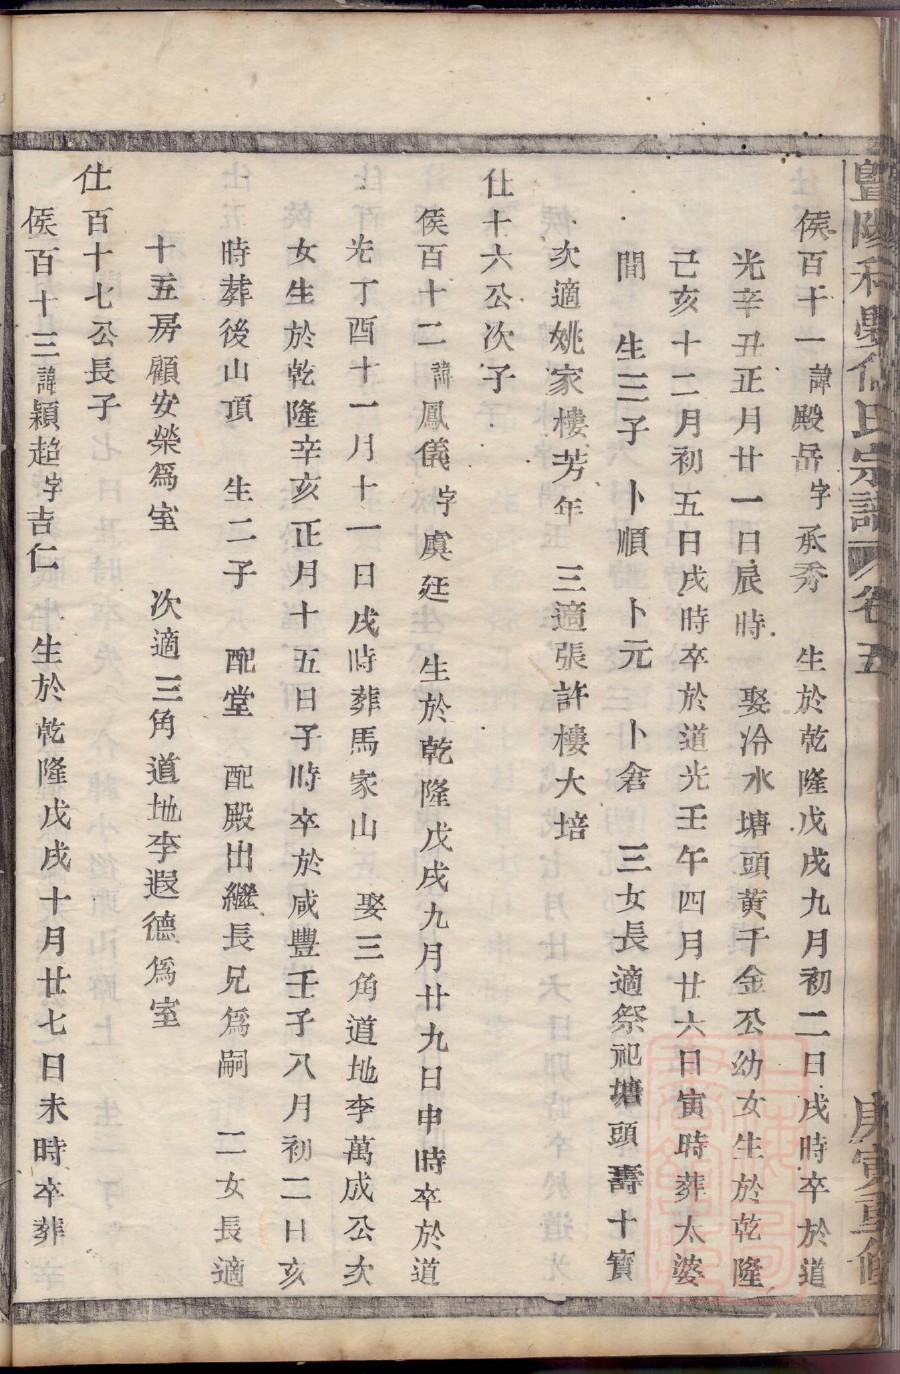 暨陽 氏宗譜 卷五 庚寅重修
侯百十一諱殿岳字承秀 生於乾隆戊戌九月初二日戌時卒於道
光辛丑正月廿一日辰時 娶冷水塘頭黃千金公幼女生於乾隆
己亥十二月初五日戌時卒於道光壬午四月廿六日寅時葬太婆
間 生三子 卜順 卜元 卜倉 三女長適祭祀塘頭壽十賓
次適姚家樓芳年 三適張許樓大培
仕十六公次子
侯百十二諱鳳儀字虞廷 生於乾隆戊戌九月廿九日申時卒於道
光丁酉十一月十一日戌時葬馬家山 娶三角道地李萬成公次
女生於乾隆辛亥正月十五日子時卒於咸豐壬子八月初二日亥
時葬後山頂 生二子 配堂 配殿出繼長兄爲嗣 二女長適
十五房顧安榮爲室 次適三角道地李遐德爲室
仕百十七公長子
侯百十三諱穎超字吉仁 生於乾隆戊戌十月廿七日未時卒葬